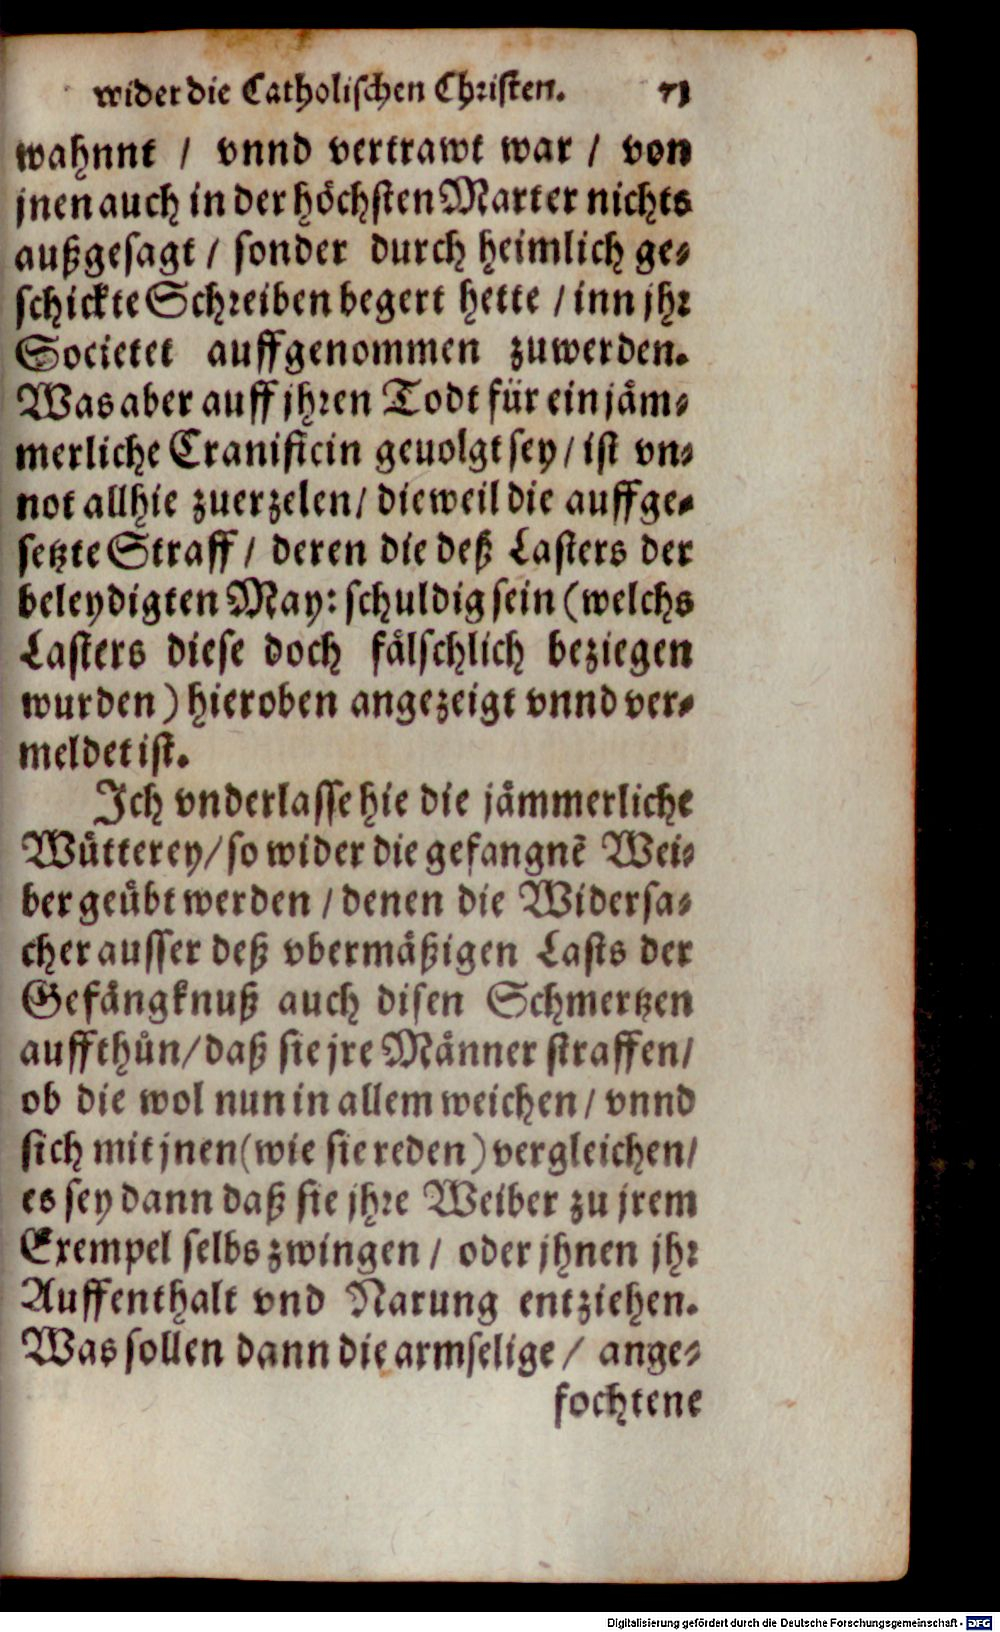 wider die Catholischen Christen. 71
wahnnt / vnnd vertrawt war / von
jnen auch in der höchsten Marter nichts
außgesagt / sonder durch heimlich ge-
schickte Schreiben begert hette / inn jhr
Societet auffgenommen zuwerden.
Was aber auff jhren Todt für ein jäm-
merliche Cranificin geuolgt sey / ist vn-
not allhie zuerzelen / dieweil die auffge-
setzte Straff / deren die deß Lasters der
beleydigten May: schuldig sein (welchs
Lasters diese doch fälschlich beziegen
wurden) hieroben angezeigt vnnd ver-
meldet ist.
Ich vnderlasse hie die jämmerliche
Wütterey / so wider die gefangnē Wei-
ber geübt werden / denen die Widersa-
cher ausser deß vbermäßigen Lasts der
Gefängknuß auch disen Schmertzen
auffthün / daß sie jre Männer straffen /
ob die wol nun in allem weichen / vnnd
sich mit jnen (wie sie reden) vergleichen /
es sey dann daß sie jhre Weiber zu jrem
Exempel selbs zwingen / oder jhnen jhr
Auffenthalt vnd Narung entziehen.
Was sollen dann die armselige / ange-
fochtene
Digitalisierung gefördert durch die Deutsche Forschungsgemeinschaft - DFG